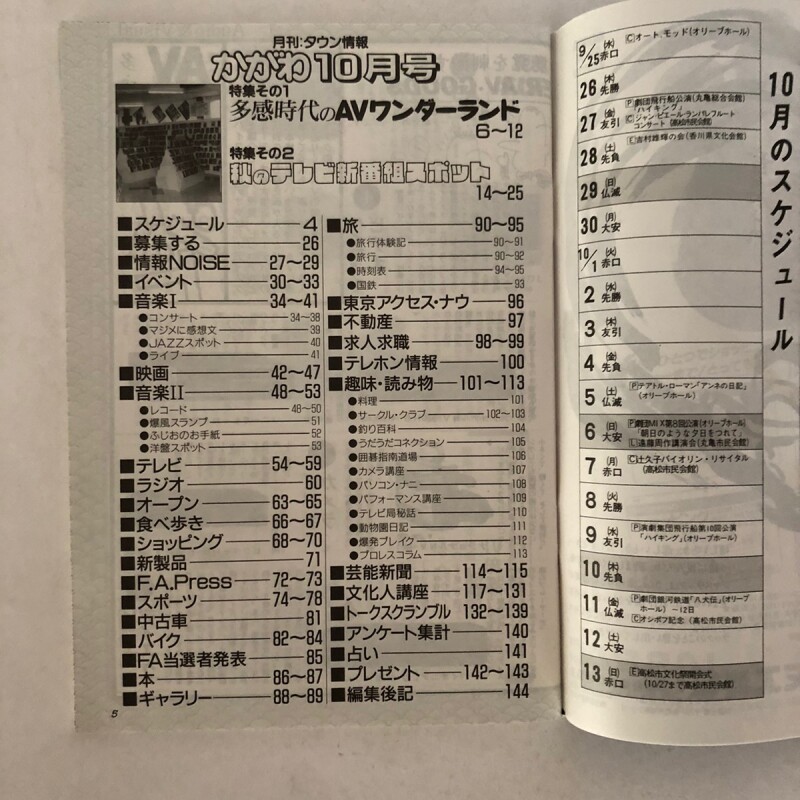 月刊:タウン情報
かがわ10月号
特集その1
多感時代のAVワンダーランド
6〜12
特集その2
秋のテレビ新番組スポット
14〜25
■スケジュール 4
■募集する 26
■情報NOISE 27〜29
■イベント 30〜33
■音楽I 34〜41
●コンサート 34〜38
●マジメに感想文 39
●JAZZスポット 40
●ライブ 41
■映画 42〜47
■音楽II 48〜53
●レコード 48〜50
●爆風スランプ 51
●ふじおのお手紙 52
●洋盤スポット 53
■テレビ 54〜59
■ラジオ 60
■オープン 63〜65
■食べ歩き 66〜67
■ショッピング 68〜70
■新製品 71
■F.A.Press 72〜73
■スポーツ 74〜78
■中古車 81
■バイク 82〜84
■FA当選者発表 85
■本 86〜87
■ギャラリー 88〜89
■旅 90〜95
●旅行体験記 90〜91
●旅行 90〜92
●時刻表 94〜95
●国鉄 93
■東京アクセス・ナウ 96
■不動産 97
■求人求職 98〜99
■テレホン情報 100
■趣味・読み物 101〜113
●料理 101
●サークル・クラブ 102〜103
●釣り百科 104
●うだうだコネクション 105
●囲碁指南道場 106
●カメラ講座 107
●パソコン・ナニ 108
●パフォーマンス講座 109
●テレビ局秘話 110
●動物園日記 111
●爆発ブレイク 112
●プロレスコラム 113
■芸能新聞 114〜115
■文化人講座 117〜131
■トークスクランブル 132〜139
■アンケート集計 140
■占い 141
■プレゼント 142〜143
■編集後記 144
5
10月のスケジュール
9/25 ㈬ 赤口 Ⓒオート、モッド(オリーブホール)
26 ㈭ 先勝
27 ㈮ 友引 Ⓟ劇団飛行船公演(丸亀総合会館)
「ハイキング」
Ⓒジャン・ピエール・ランパルフルート
コンサート(高松市民会館)
28 ㈯ 先負 Ⓔ吉村雄輝の会(香川県文化会館)
29 ㈰ 仏滅
30 ㈪ 大安
10/1 ㈫ 赤口
2 ㈬ 先勝
3 ㈭ 友引
4 ㈮ 先負
5 ㈯ 仏滅 Ⓟテアトル・ローマン「アンネの日記」
(オリーブホール)
6 ㈰ 大安 Ⓟ劇団MIX第8回公演(オリーブホール)
「朝日のような夕日をつれて」
Ⓛ遠藤周作講演会(丸亀市民会館)
7 ㈪ 赤口 Ⓒ辻久子バイオリン・リサイタル
(高松市民会館)
8 ㈫ 先勝
9 ㈬ 友引 Ⓟ演劇集団飛行船第10回公演
「ハイキング」(オリーブホール)
10 ㈭ 先負
11 ㈮ 仏滅 Ⓟ劇団銀河鉄道「八犬伝」(オリーブ
ホール) −12日
Ⓒオシポフ記念(高松市民会館)
12 ㈯ 大安
13 ㈰ 赤口 Ⓔ高松市文化祭開会式
(10/27まで高松市民会館)